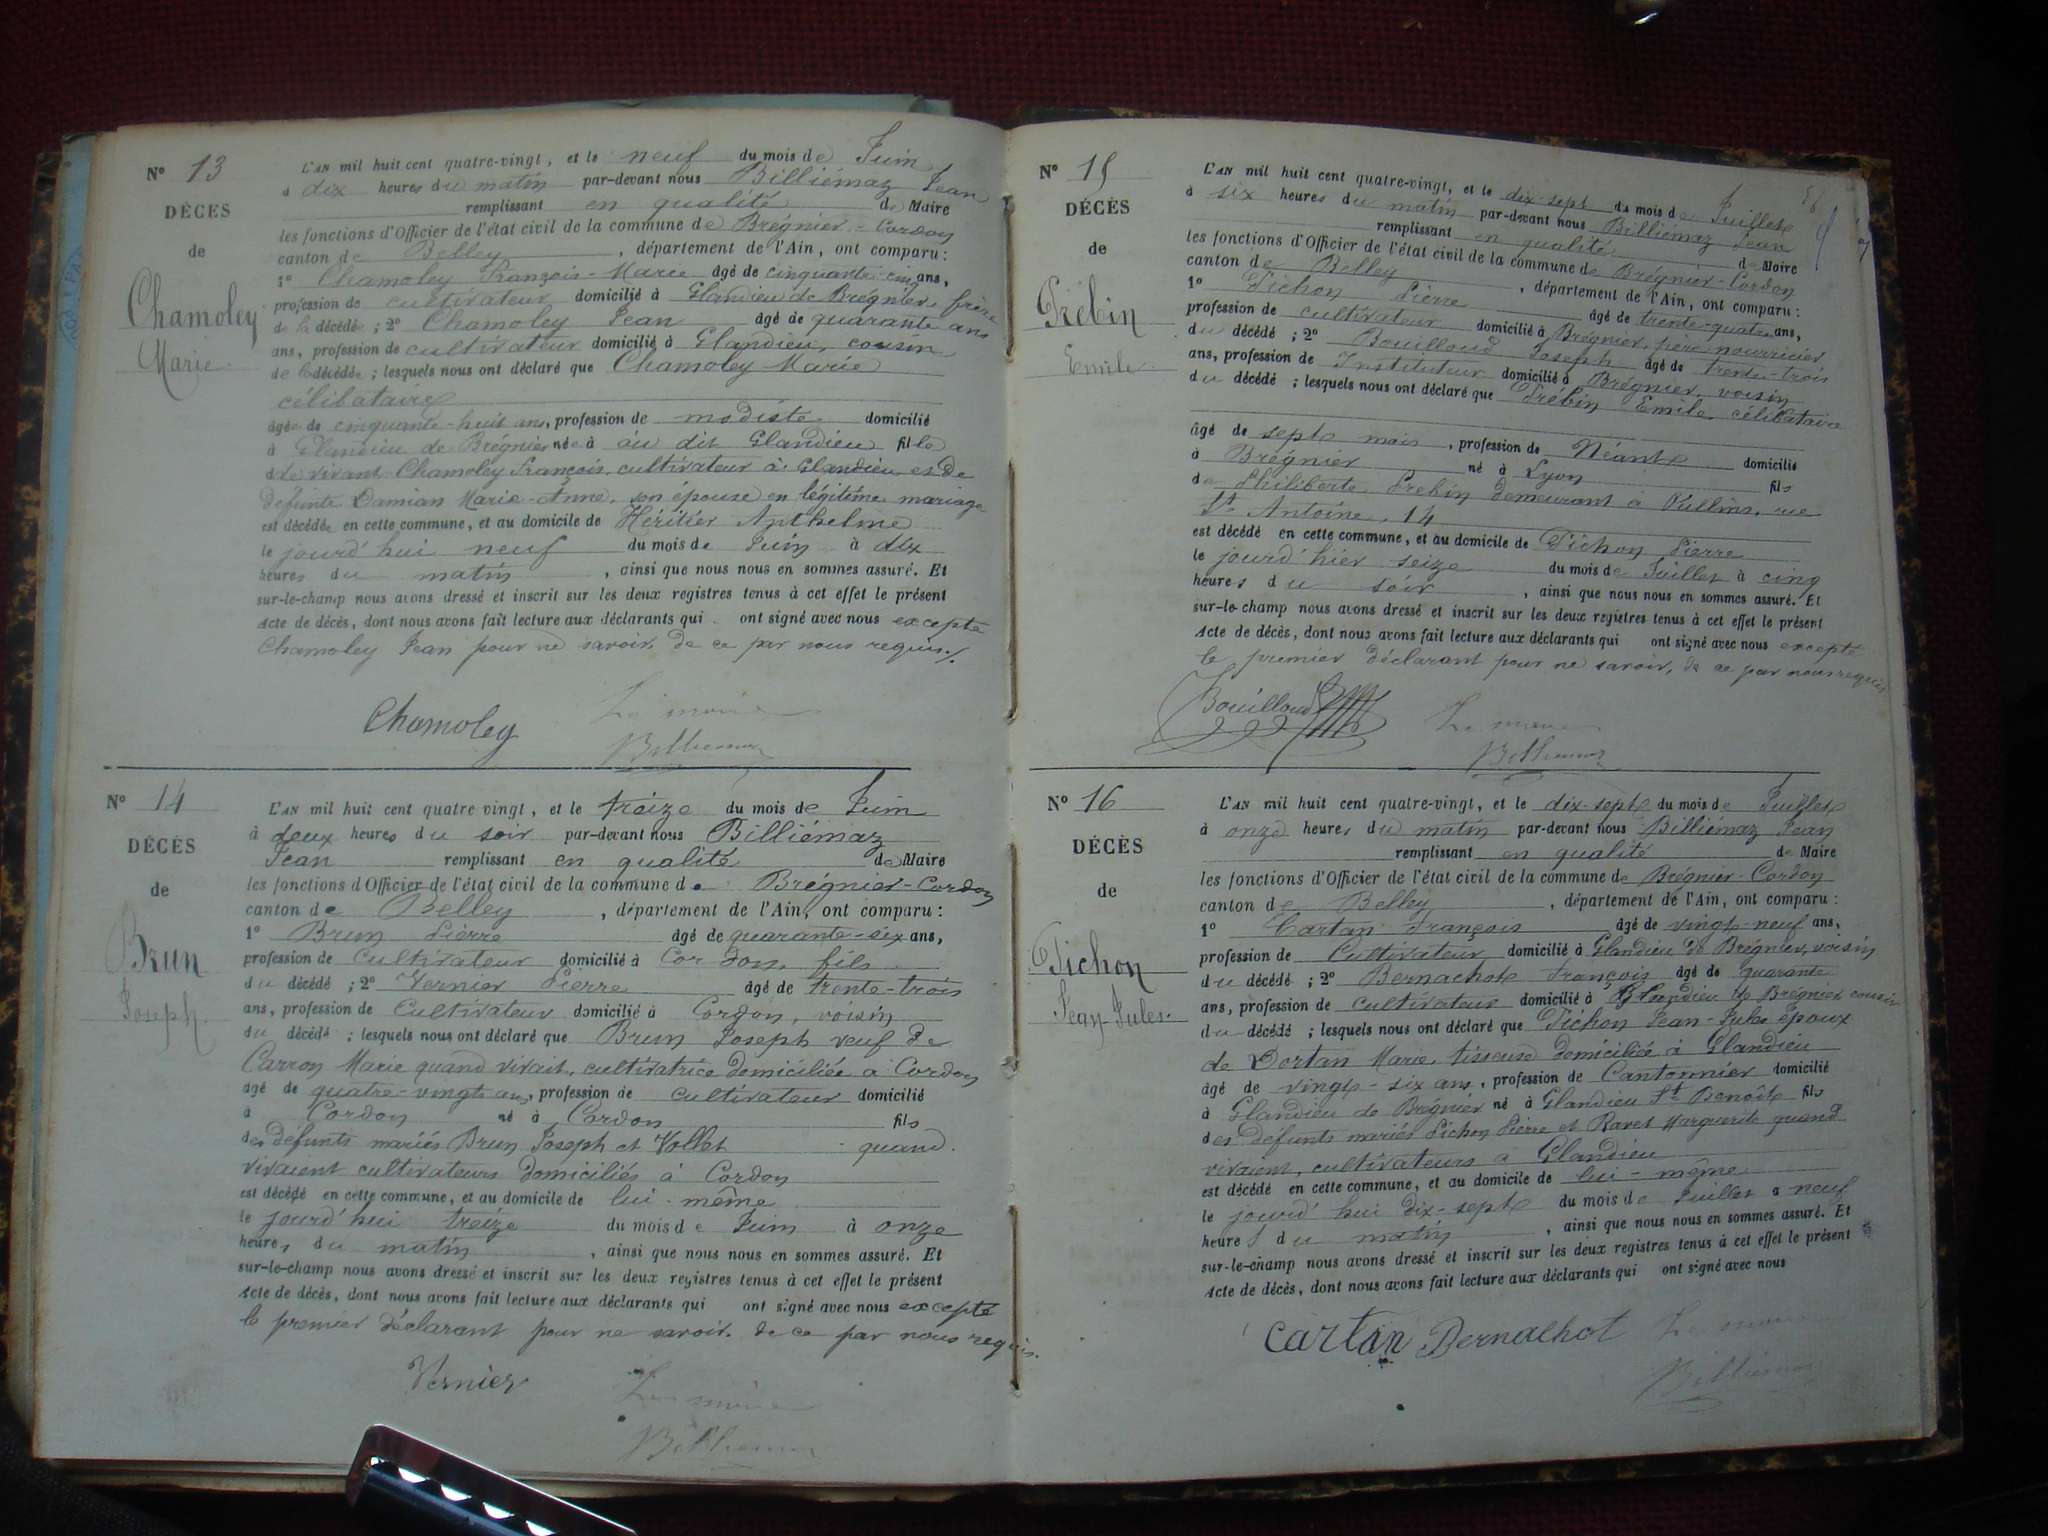 N° 13
DÉCES
de
Chamoley
Marie
L'AN mil huit cent quatre-vingt, et le neuf du mois de Juin
à dix heures du matin par-devant nous Billiémaz Jean
remplissant en qualité de Maire
les fonctions d'Officier de l'état civil de la commune de Brégnier-Cordon
canton de Belley, département de l'Ain, ont comparu:
1° Chamoley François-Marie âgé de cinquante-cinq ans,
profession de cultivateur domicilié à Glandieu de Brégnier, frère
de la décédée; 2° Chamoley Jean âgé de quarante ans
ans, profession de cultivateur domicilié à Glandieu, cousin
de la décédée; lesquels nous ont déclaré que Chamoley Marie
célibataire
âgée de cinquante-huit ans, profession de modiste domicilié
à Glandieu de Brégnier née à au dit Glandieu fille
de vivant Chamoley François, cultivateur à Glandieu et de
défunte Damian Marie-Anne, son épouse en légitime mariage
est décédée en cette commune, et au domicile de Héritier Anthelme
le jourd'hui neuf du mois de Juin à dix
heures du matin, ainsi que nous nous en sommes assuré. Et
sur-le-champ nous avons dressé et inscrit sur les deux registres tenus à cet effet le présent
Acte de décès, dont nous avons fait lecture aux déclarants qui ont signé avec nous excepté
Chamoley Jean pour ne savoir, de ce par nous requis./.
Chamoley Le maire
Billiemaz
N° 14
DÉCÈS
de
Brun
Joseph
L'AN mil huit cent quatre vingt, et le treize du mois de Juin
à deux heures du soir par-devant nous Billiémaz
Jean remplissant en qualité de Maire
les fonctions d'Officier de l'état civil de la commune de Brégnier-Cordon
canton de Belley, département de l'Ain, ont comparu:
1° Brun Pierre âgé de quarante-six ans,
profession de cultivateur domicilié à Cordon, fils
du décédé; 2° Vernier Pierre âgé de trente-trois
ans, profession de Cultivateur domicilié à Cordon, voisin
du décédé; lesquels nous ont déclaré que Brun Joseph veuf de
Carron Marie quand vivait, cultivatrice domiciliée à Cordon
âgé de quatre-vingts ans, profession de cultivateur domicilié
à Cordon né à Cordon fils
des défunts mariés Brun Joseph et Vollet quand
vivaient cultivateurs domiciliés à Cordon
est décédé en cette commune, et au domicile de lui-même
le jourd'hui treize du mois de Juin à onze
heures du matin, ainsi que nous nous en sommes assuré. Et
sur-le-champ nous avons dressé et inscrit sur les deux registres tenus à cet effet le présent
Acte de décès, dont nous avons fait lecture aux déclarants qui ont signé avec nous excepté
le premier déclarant pour ne savoir, de ce par nous requis.
Vernier Le maire
Billiemaz
N° 15
DÉCÈS
de
Prébin
Emile
L'AN mil huit cent quatre-vingt, et le dix-sept du mois de Juillet
à six heures du matin par-devant nous Billiémaz Jean
remplissant en qualité de Maire
les fonctions d'Officier de l'état civil de la commune de Brégnier-Cordon
canton de Belley, département de l'Ain, ont comparu:
1° Pichon Pierre âgé de trente-quatre ans,
profession de cultivateur domicilié à Brégnier, père nourricier
du décédé; 2° Bouilloud Joseph âgé de trente-trois
ans, profession de Instituteur domicilié à Brégnier, voisin
du décédé; lesquels nous ont déclaré que Prébin Emile, célibataire
âgé de sept mois, profession de Néant domicilié
à Brégnier né à Lyon fils
de Philiberte Prebin demeurant à Oullins, rue
St Antoine, 14
est décédé en cette commune, et au domicile de Pichon Pierre
le jourd'hier seize du mois de Juillet à cinq
heures du soir, ainsi que nous nous en sommes assuré. Et
sur-le-champ nous avons dressé et inscrit sur les deux registres tenus à cet effet le présent
Acte de décès, dont nous avons fait lecture aux déclarants qui ont signé avec nous excepté
le premier déclarant pour ne savoir, de ce par nous requis
Bouilloud Le maire
Billiemaz
N° 16
DÉCÈS
de
Pichon
Jean-Jules
L'AN mil huit cent quatre-vingt, et le dix-sept du mois de Juillet
à onze heures du matin par-devant nous Billiémaz Jean
remplissant en qualité de Maire
les fonctions d'Officier de l'état civil de la commune de Brégnier-Cordon
canton de Belley, département de l'Ain, ont comparu:
1° Cartan François âgé de vingt-neuf ans,
profession de Cultivateur domicilié à Glandieu de Brégnier, voisin
du décédé; 2° Bernachot François âgé de quarante
ans, profession de cultivateur domicilié à Glandieu de Brégnier cousin
du décédé; lesquels nous ont déclaré que Pichon Jean-Jules époux
de Dortan Marie, tisseuse domiciliée à Glandieu
âgé de vingt-six ans, profession de Cantonnier domicilié
à Glandieu de Brégnier né à Glandieu St Benoît fils
des défunts mariés Pichon Pierre et Ravet Marguerite quand
vivaient, cultivateurs à Glandieu
est décédé en cette commune, et au domicile de lui-même
le jourd'hui dix-sept du mois de Juillet à neuf
heures du matin, ainsi que nous nous en sommes assuré. Et
sur-le-champ nous avons dressé et inscrit sur les deux registres tenus à cet effet le présent
Acte de décès, dont nous avons fait lecture aux déclarants qui ont signé avec nous
Cartan Bernachot Le maire
Billiemaz